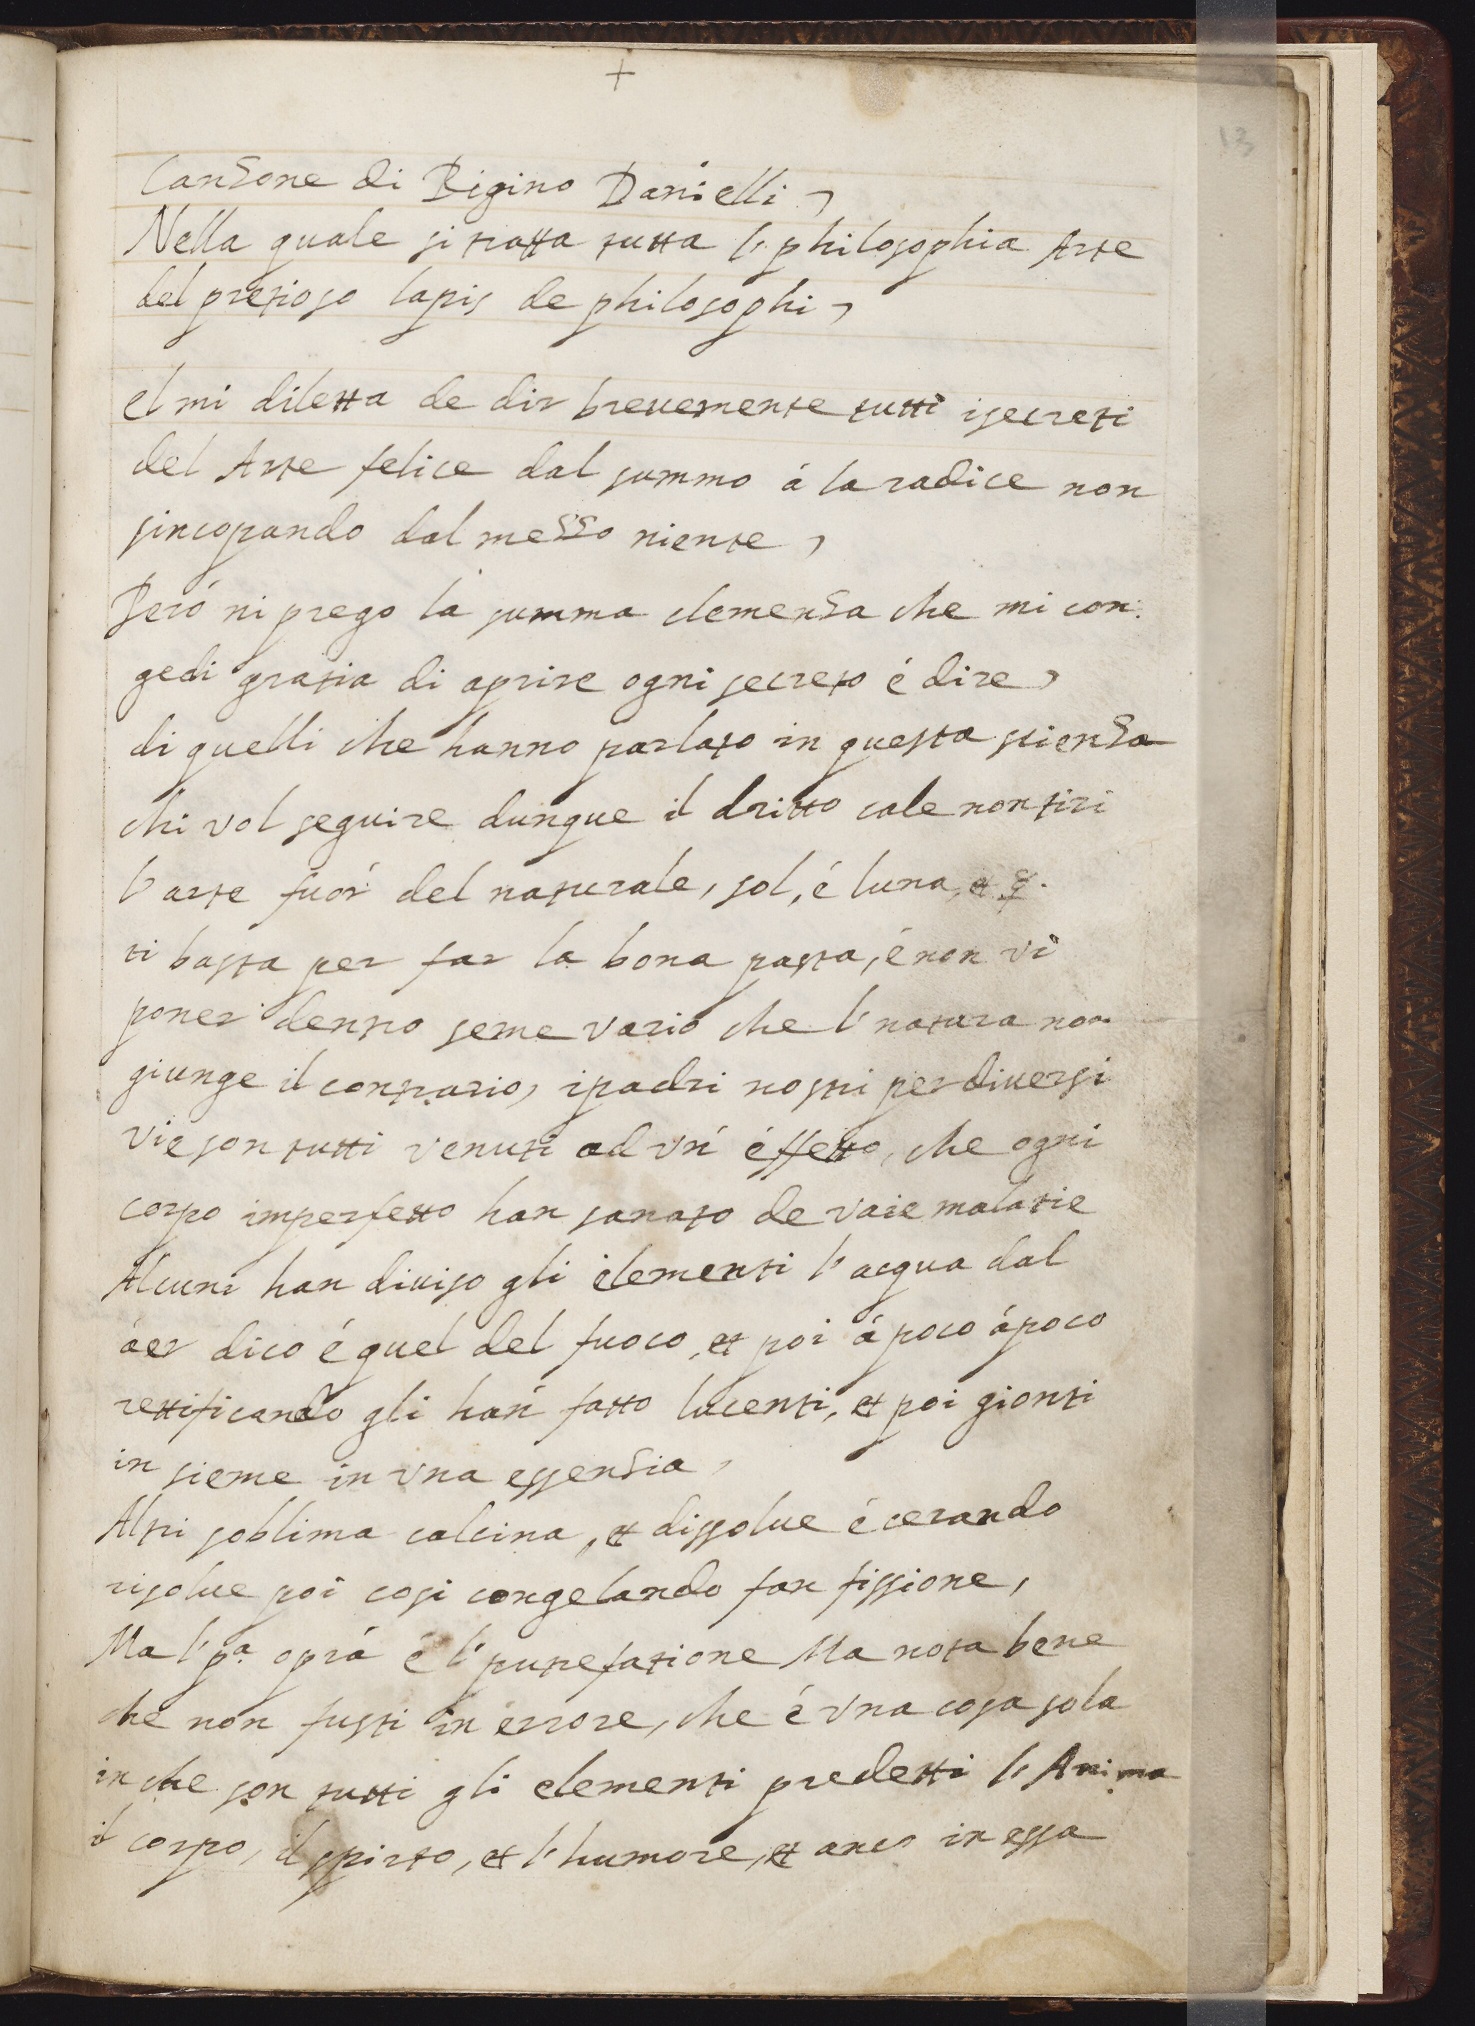 +
13
Canzone di Rigino Danielli,
Nella quale si tratta tutta l' philosophia Arte
del pretioso lapis de philosophi,
el mi diletta de dir brevemente tutti isecreti
del Arte felice dal summo á la radice non
sincopando dal mezzo niente,
Peró ni prego la summa clemenza che mi con:
gedi gratia di aprire ogni secreto é dire,
di quelli che hanno parlato in questa scienza
chi vol seguire dunque il dritto cale non tiri
l' arte fuor del naturale, sol, é luna, et ☿.
ti basta per far la bona pasta, é non vi
poner dentro seme vario che l' natura non
giunge il contrario, ipadri nostri per diversi
vie son tutti venuti ad un éffetto, che ogni
corpo imperfetto han sanato de varie malatie
Alcuni han diviso gli elementi l' acqua dal
áer dico é quel del fuoco, et poi á poco ápoco
rettificando gli han fatto lucenti, et poi gionti
in sieme in una essenzia,
Altri soblima calcina, et dissolve é cerando
risolve poi cosi congelando fan fissione,
Ma l' pa oprá é l' putrefatione Ma nota bene
che non fusti in errore, che é una cosa sola
in che son tutti gli elementi predetti l' Anima
il corpo, il spirto, et l' humore, et anco in essa